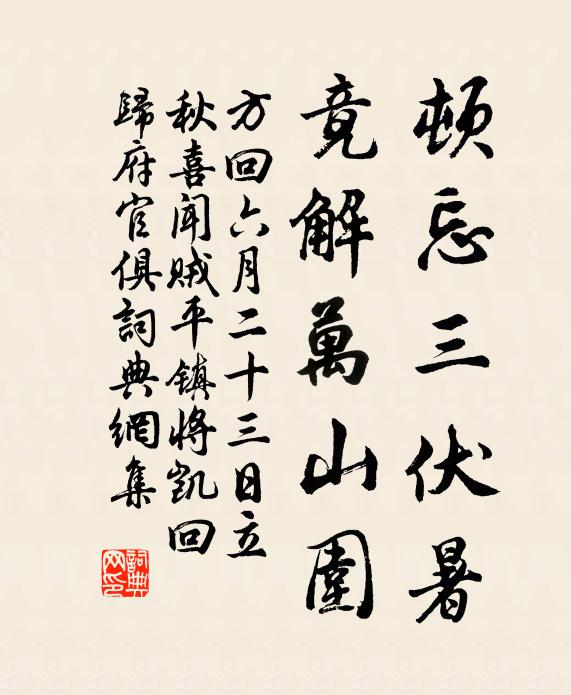 頓忘三伏暑
竟解萬山圍
方回六月二十三日立
秋喜闻贼平镇將凱回
歸府官俱詞典網集
詞典
网印